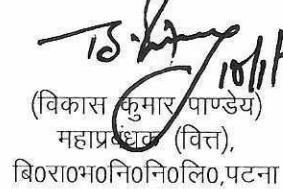 (विकास कुमार पाण्डेय)
महाप्रबंधक (वित्त),
बि०रा०भ०नि०नि०लि०,पटना